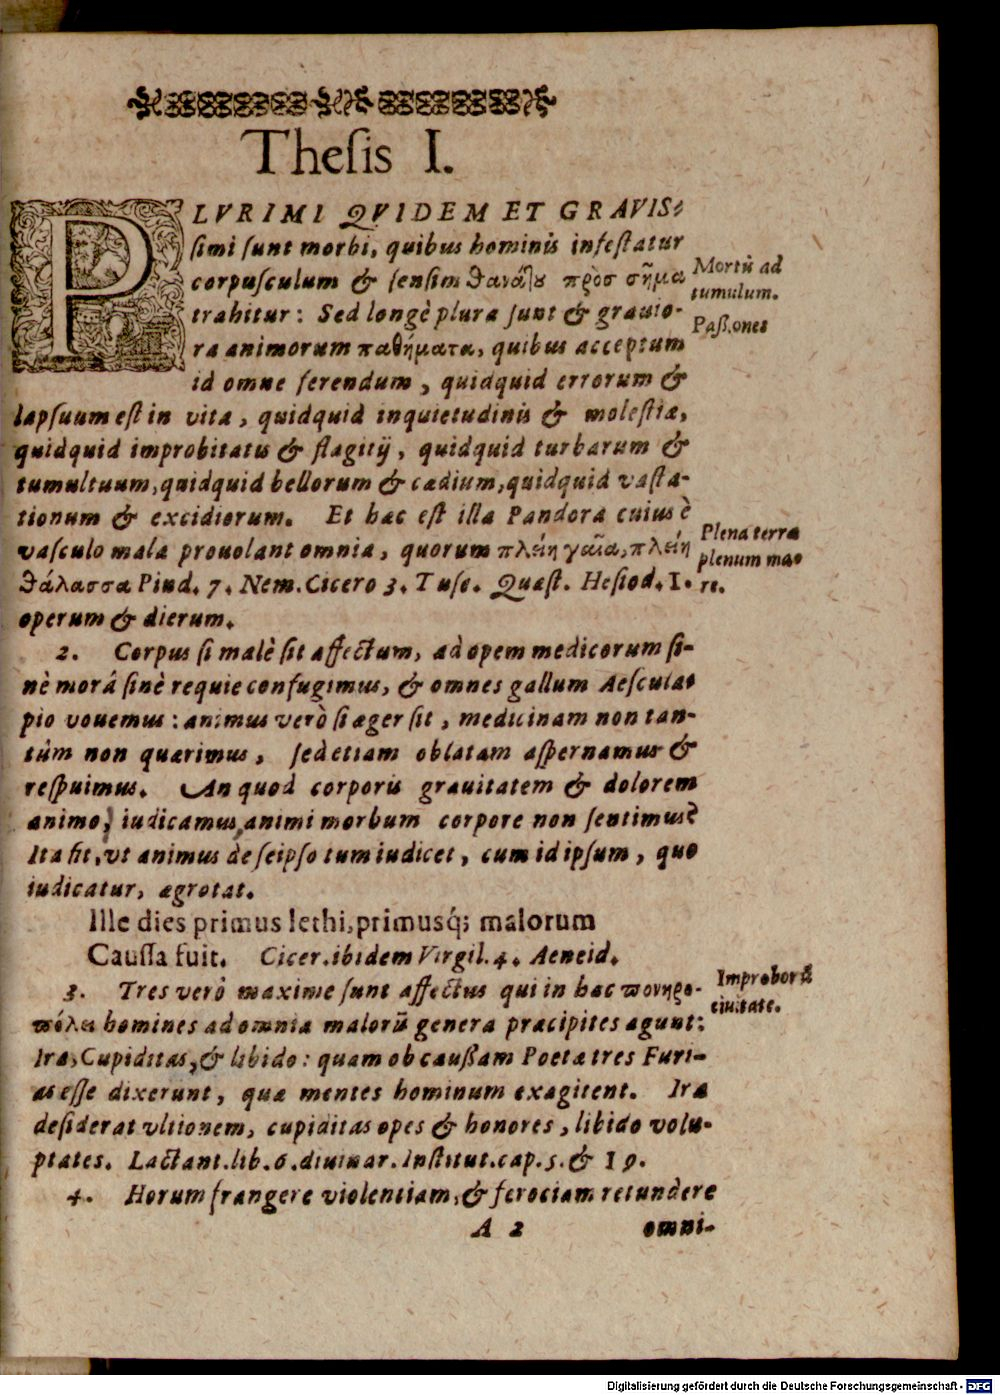 Theſis I.
PLVRIMI QVIDEM ET GRAVIS-
ſimi ſunt morbi, quibus hominis infeſtatur
corpuſculum & ſenſim θανάτου πρὸς σῆμα
trahitur: Sed longè plura ſunt & grauio-
ra animorum παθήματα, quibus acceptum
id omne ferendum, quidquid errorum &
lapſuum eſt in vita, quidquid inquietudinis & moleſtiæ,
quidquid improbitatis & flagitij, quidquid turbarum &
tumultuum, quidquid bellorum & cædium, quidquid vaſta-
tionum & excidiorum. Et hæc eſt illa Pandora cuius è
vaſculo mala prouolant omnia, quorum πλείη γαῖα, πλείη
θάλασσα Pind. 7. Nem. Cicero 3. Tuſc. Quæſt. Heſiod. 1.
operum & dierum.
Mortũ ad
tumulum.
Paſſiones
Plena terra
plenum ma-
re.
2. Corpus ſi malè ſit affectum, ad opem medicorum ſi-
nè morâ ſinè requie confugimus, & omnes gallum Aeſcula-
pio vouemus: animus verò ſi æger ſit, medicinam non tan-
tùm non quærimus, ſed etiam oblatam aſpernamur &
reſpuimus. An quod corporis grauitatem & dolorem
animo, iudicamus, animi morbum corpore non ſentimus?
Ita fit, vt animus de ſeipſo tum iudicet, cum id ipſum, quo
iudicatur, ægrotat.
Ille dies primus lethi, primusq́; malorum
Cauſſa fuit. Cicer. ibidem Virgil. 4. Aeneid.
3. Tres verò maxime ſunt affectus qui in hac πονηρο-
πόλει homines ad omnia malorũ genera præcipites agunt:
Ira, Cupiditas, & libido: quam ob cauſſam Poetæ tres Furi-
as eſſe dixerunt, quæ mentes hominum exagitent. Ira
deſiderat vltionem, cupiditas opes & honores, libido volu-
ptates. Lactant. lib. 6. diuinar. Inſtitut. cap. 5. & 19.
Improborũ
ciuitate.
4. Horum frangere violentiam, & ferociam retundere
A 2 omni-
Digitalisierung gefördert durch die Deutsche Forschungsgemeinschaft - DFG